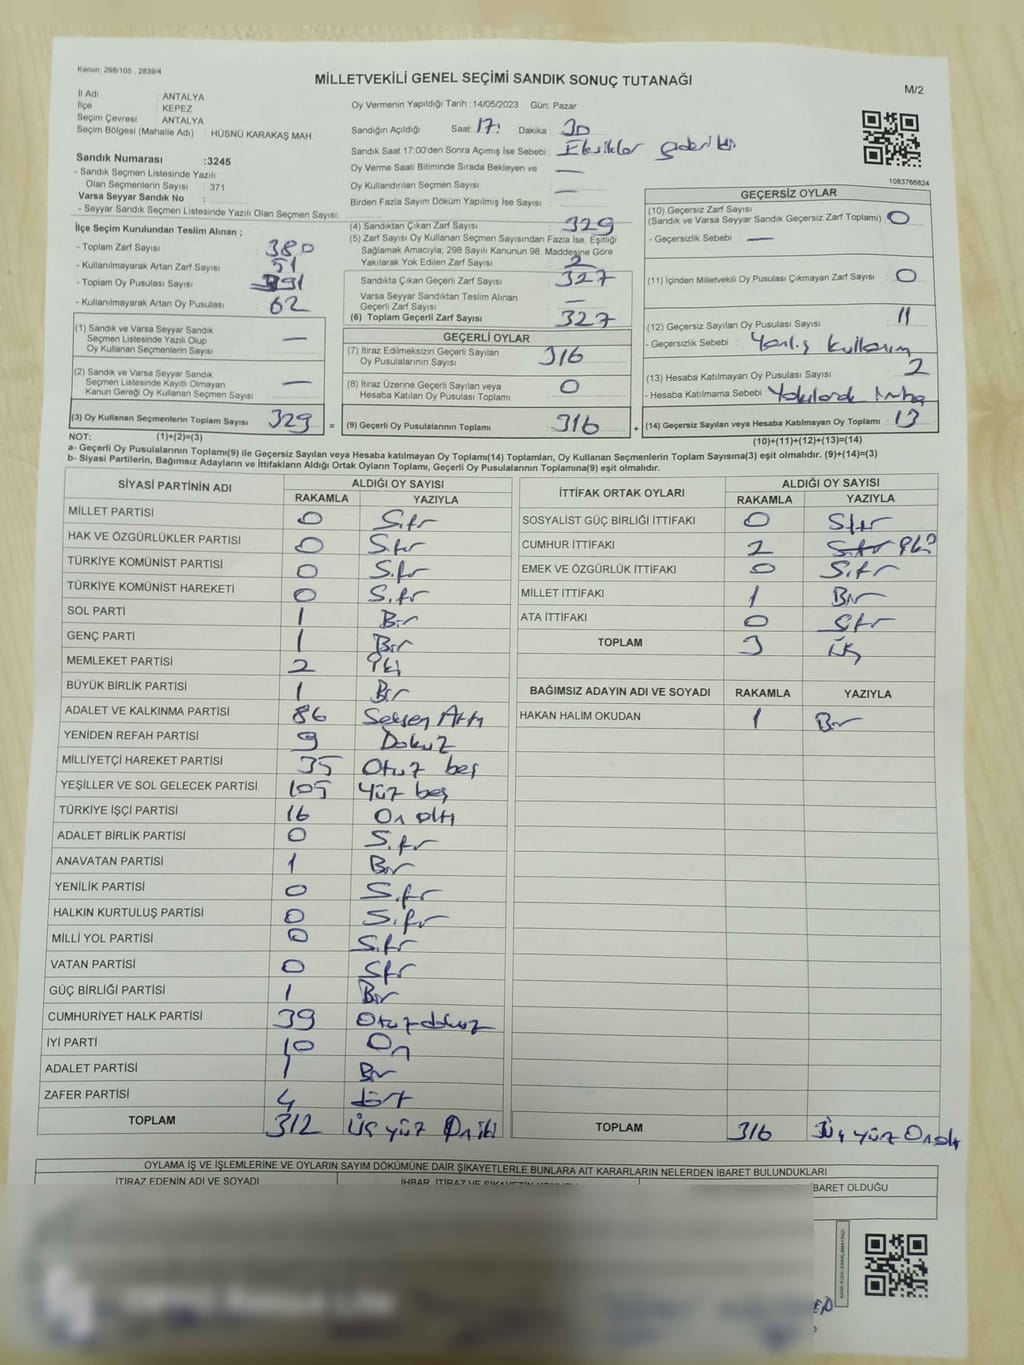 Kanun: 298/105 , 2839/4
MİLLETVEKİLİ GENEL SEÇİMİ SANDIK SONUÇ TUTANAĞI
M/2
İl Adı : ANTALYA
İlçe : KEPEZ
Seçim Çevresi : ANTALYA
Seçim Bölgesi (Mahalle Adı) : HÜSNÜ KARAKAŞ MAH.
Sandık Numarası :3245
- Sandık Seçmen Listesinde Yazılı
Olan Seçmenlerin Sayısı : 371
Varsa Seyyar Sandık No :
- Seyyar Sandık Seçmen Listesinde Yazılı Olan Seçmen Sayısı:
Oy Vermenin Yapıldığı Tarih :14/05/2023 Gün: Pazar
Sandığın Açıldığı Saat: 17: Dakika : 30
Sandık Saat 17:00'den Sonra Açımış İse Sebebi : Eksikler
Oy Verme Saati Bitiminde Sırada Bekleyen ve : —
Oy Kullandırılan Seçmen Sayısı : —
Birden Fazla Sayım Döküm Yapılmış İse Sayısı :
1083766824
İlçe Seçim Kurulundan Teslim Alınan ;
- Toplam Zarf Sayısı : 380
- Kullanılmayarak Artan Zarf Sayısı : 51
- Toplam Oy Pusulası Sayısı : 391
- Kullanılmayarak Artan Oy Pusulası : 62
(1) Sandık ve Varsa Seyyar Sandık
Seçmen Listesinde Yazılı Olup
Oy Kullanan Seçmenlerin Sayısı : —
(2) Sandık ve Varsa Seyyar Sandık
Seçmen Listesinde Kayıtlı Olmayan
Kanun Gereği Oy Kullanan Seçmen Sayısı : —
(3) Oy Kullanan Seçmenlerin Toplam Sayısı : 329 =
(4) Sandıktan Çıkan Zarf Sayısı : 329
(5) Zarf Sayısı Oy Kullanan Seçmen Sayısından Fazla İse, Eşitliği
Sağlamak Amacıyla; 298 Sayılı Kanunun 98. Maddesine Göre
Yakılarak Yok Edilen Zarf Sayısı : 2
Sandıkta Çıkan Geçerli Zarf Sayısı : 327
Varsa Seyyar Sandıktan Teslim Alınan
Geçerli Zarf Sayısı : —
(6) Toplam Geçerli Zarf Sayısı : 327
GEÇERLİ OYLAR
(7) İtiraz Edilmeksizin Geçerli Sayılan
Oy Pusulalarının Sayısı : 316
(8) İtiraz Üzerine Geçerli Sayılan veya
Hesaba Katılan Oy Pusulası Toplamı : 0
(9) Geçerli Oy Pusulalarının Toplamı : 316 +
GEÇERSİZ OYLAR
(10) Geçersiz Zarf Sayısı
(Sandık ve Varsa Seyyar Sandık Geçersiz Zarf Toplamı) : 0
- Geçersizlik Sebebi : —
(11) İçinden Milletvekili Oy Pusulası Çıkmayan Zarf Sayısı : 0
(12) Geçersiz Sayılan Oy Pusulası Sayısı : 11
- Geçersizlik Sebebi : Yanlış kullanım
(13) Hesaba Katılmayan Oy Pusulası Sayısı : 2
- Hesaba Katılmama Sebebi : Yakılarak imha
(14) Geçersiz Sayılan veya Hesaba Katılmayan Oy Toplamı : 13
NOT: (1)+(2)=(3)
(10)+(11)+(12)+(13)=(14)
a- Geçerli Oy Pusulalarının Toplamı(9) ile Geçersiz Sayılan veya Hesaba katılmayan Oy Toplamı(14) Toplamları, Oy Kullanan Seçmenlerin Toplam Sayısına(3) eşit olmalıdır. (9)+(14)=(3)
b- Siyasi Partilerin, Bağımsız Adayların ve İttifakların Aldığı Ortak Oyların Toplamı, Geçerli Oy Pusulalarının Toplamına(9) eşit olmalıdır.
SİYASİ PARTİNİN ADI ALDIĞI OY SAYISI
RAKAMLA YAZIYLA
MİLLET PARTİSİ 0 Sıfır
HAK VE ÖZGÜRLÜKLER PARTİSİ 0 Sıfır
TÜRKİYE KOMÜNİST PARTİSİ 0 Sıfır
TÜRKİYE KOMÜNİST HAREKETİ 0 Sıfır
SOL PARTİ 1 Bir
GENÇ PARTİ 1 Bir
MEMLEKET PARTİSİ 2 İki
BÜYÜK BİRLİK PARTİSİ 1 Bir
ADALET VE KALKINMA PARTİSİ 86 Seksen Altı
YENİDEN REFAH PARTİSİ 9 Dokuz
MİLLİYETÇİ HAREKET PARTİSİ 35 Otuz beş
YEŞİLLER VE SOL GELECEK PARTİSİ 105 Yüz beş
TÜRKİYE İŞÇİ PARTİSİ 16 On altı
ADALET BİRLİK PARTİSİ 0 Sıfır
ANAVATAN PARTİSİ 1 Bir
YENİLİK PARTİSİ 0 Sıfır
HALKIN KURTULUŞ PARTİSİ 0 Sıfır
MİLLİ YOL PARTİSİ 0 Sıfır
VATAN PARTİSİ 0 Sıfır
GÜÇ BİRLİĞİ PARTİSİ 1 Bir
CUMHURİYET HALK PARTİSİ 39 Otuz dokuz
İYİ PARTİ 10 On
ADALET PARTİSİ 1 Bir
ZAFER PARTİSİ 4 dört
TOPLAM 312 Üç yüz On iki
İTTİFAK ORTAK OYLARI ALDIĞI OY SAYISI
RAKAMLA YAZIYLA
SOSYALİST GÜÇ BİRLİĞİ İTTİFAKI 0 Sıfır
CUMHUR İTTİFAKI 2 Sıfır İki
EMEK VE ÖZGÜRLÜK İTTİFAKI 0 Sıfır
MİLLET İTTİFAKI 1 Bir
ATA İTTİFAKI 0 Sıfır
TOPLAM 3 Üç
BAĞIMSIZ ADAYIN ADI VE SOYADI RAKAMLA YAZIYLA
HAKAN HALİM OKUDAN 1 Bir
TOPLAM 316 Üç yüz On altı
OYLAMA İŞ VE İŞLEMLERİNE VE OYLARIN SAYIM DÖKÜMÜNE DAİR ŞİKAYETLERLE BUNLARA AİT KARARLARIN NELERDEN İBARET BULUNDUKLARI
İTİRAZ EDENİN ADI VE SOYADI İHBAR, İTİRAZ VE ŞİKAYETİN KONUSU İBARET OLDUĞU